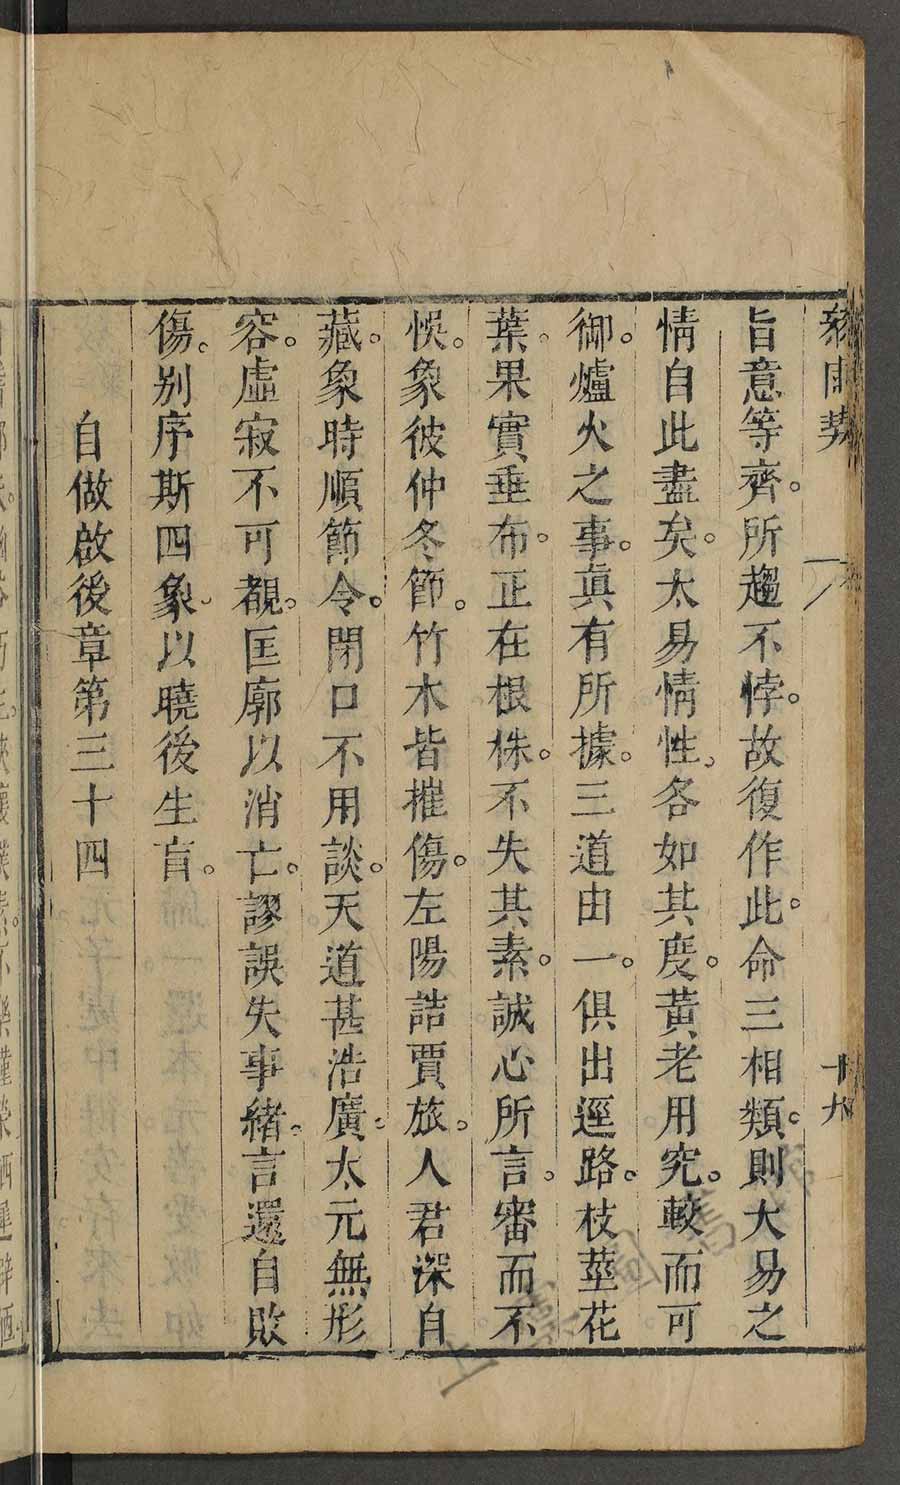 旨意等齊。所趨不悖。故復作此。命三相類。則大易之
情自此盡矣。太易情性。各如其度。黃老用究。較而可
御。爐火之事。眞有所據。三道由一。俱出逕路。枝莖花
葉。果實垂布。正在根株。不失其素。誠心所言。審而不
悞。象彼仲冬節。竹木皆摧傷。左陽詰賈旅。人君深自
藏。象時順節令。閉口不用談。天道甚浩廣。太元無形
容。虛寂不可覩。匡廓以消亡。謬誤失事緒。言還自敗
傷。別序斯四象。以曉後生盲。
自做啟後章第三十四